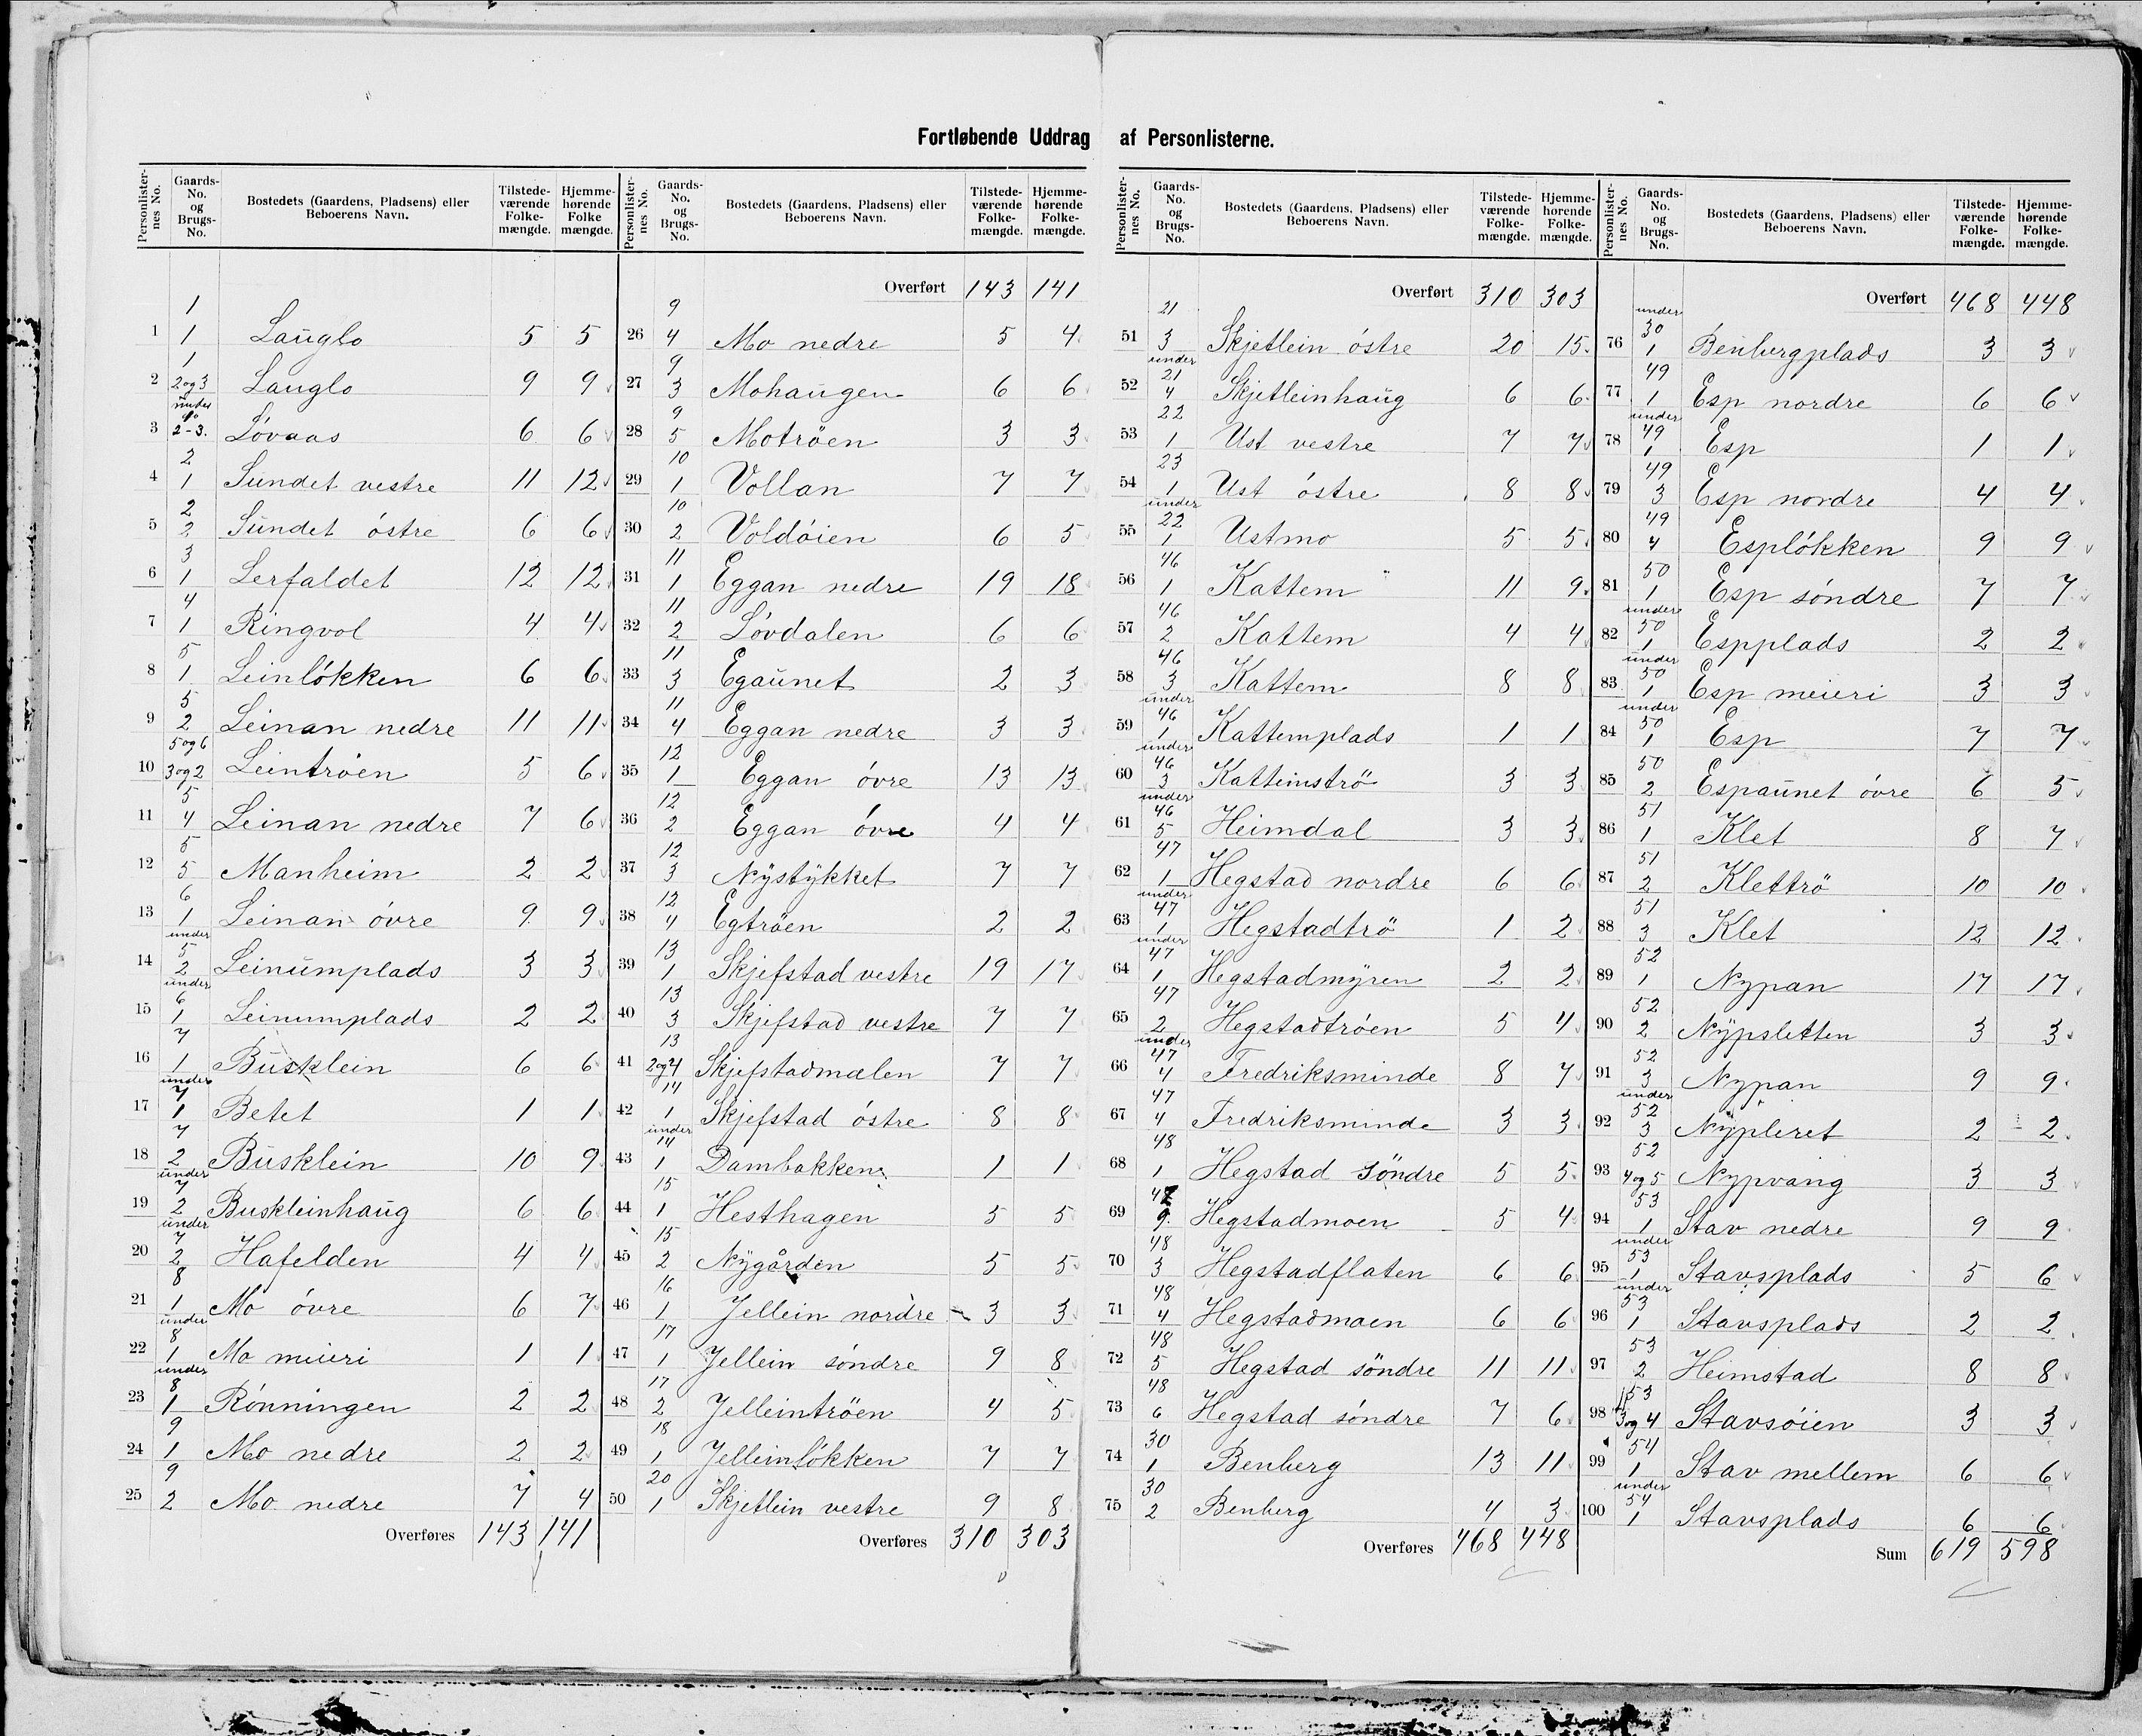 Fortløbende Uddrag af Personlisterne.
Personlisternes No. Gaards-No. og Brugs-No. Bostedets (Gaardens, Pladsens) eller Beboerens Navn. Tilstedeværende Folkemængde. Hjemmehørende Folke mængde.
1 1 1 Lauglo 5 5
2 1 2 og 3 Lauglo 9 9
3 under 2-3. Løvaas 6 6
4 2 1 Sundet vestre 11 12
5 2 2 Sundet östre 6 6
6 3 1 Lerfaldet 12 12
7 4 1 Ringvol 4 4
8 5 1 Leinlökken 6 6
9 5 2 Leinan nedre 11 11
10 5 og 6 3 og 2 Leintröen 5 6
11 5 4 Leinan nedre 7 6
12 5 5 Manheim 2 2
13 6 1 Leinan övre 9 9
14 under 5 2 Leinumplads 3 3
15 under 6 1 Leinumplads 2 2
16 7 1 Busklein 6 6
17 under 7 1 Betet 1 1
18 7 2 Busklein 10 9
19 under 7 2 Buskleinhaug 6 6
20 under 7 2 Hafelden 4 4
21 8 1 Mo övre 6 7
22 under 8 1 Mo meieri 1 1
23 under 8 1 Rönningen 2 2
24 9 1 Mo nedre 2 2
25 9 2 Mo nedre 7 4
Overføres 143 141
Personlisternes No. Gaards-No. og Brugs-No. Bostedets (Gaardens, Pladsens) eller Beboerens Navn. Tilstedeværende Folkemængde. Hjemmehørende Folkemængde.
Overført 143 141
26 9 4 Mo nedre 5 4
27 9 3 Mohaugen 6 6
28 9 5 Motröen 3 3
29 10 1 Vollan 7 7
30 10 2 Voldöien 6 5
31 11 1 Eggan nedre 19 18
32 11 2 Lövdalen 6 6
33 11 3 Egaunet 2 3
34 11 4 Eggan nedre 3 3
35 12 1 Eggan övre 13 13
36 12 2 Eggan övre 4 4
37 12 3 Nystykket 7 7
38 12 4 Egtröen 2 2
39 13 1 Skjefstad vestre 19 17
40 13 3 Skjefstad vestre 7 7
41 13 2 og 4 Skjefstadmælen 7 7
42 14 1 Skjefstad östre 8 8
43 under 14 1 Dambakken 1 1
44 15 1 Hesthagen 5 5
45 15 2 Nygården 5 5
46 16 1 Jellein nordre 3 3
47 17 1 Jellein söndre 9 8
48 17 2 Jelleintröen 4 5
49 18 1 Jelleinlökken 7 7
50 20 1 Skjetlein vestre 9 8
Overføres 310 303
Personlisternes No. Gaards-No. og Brugs-No. Bostedets (Gaardens, Pladsens) eller Beboerens Navn. Tilstedeværende Folkemængde. Hjemmehørende Folkemængde.
Overført 310 303
51 21 3 Skjetlein östre 20 15
52 under 21 4 Skjetleinhaug 6 6
53 22 1 Ust vestre 7 7
54 23 1 Ust östre 8 8
55 under 22 1 Ustmo 5 5
56 46 1 Kattem 11 9
57 46 2 Kattem 4 4
58 46 3 Kattem 8 8
59 under 46 1 Kattemplads 1 1
60 under 46 3 Kattemströ 3 3
61 under 46 5 Heimdal 3 3
62 47 1 Hegstad nordre 6 6
63 under 47 1 Hegstadtrö 1 2
64 under 47 1 Hegstadmyren 2 2
65 47 2 Hegstadtröen 5 4
66 under 47 4 Fredriksminde 8 7
67 47 4 Fredriksminde 3 3
68 48 1 Hegstad söndre 5 5
69 47 9 Hegstadmoen 5 4
70 48 3 Hegstadflaten 6 6
71 48 4 Hegstadmoen 6 6
72 48 5 Hegstad söndre 11 11
73 48 6 Hegstad söndre 7 6
74 30 1 Benberg 13 11
75 30 2 Benberg 4 3
Overføres 468 448
Personlisternes No. Gaards-No. og Brugs-No. Bostedets (Gaardens, Pladsens) eller Beboerens Navn. Tilstedeværende Folkemængde. Hjemmehørende Folkemængde.
Overført 468 448
76 under 30 1 Benbergplads 3 3
77 49 1 Esp nordre 6 6
78 under 49 1 Esp 1 1
79 49 3 Esp nordre 4 4
80 49 4 Esplökken 9 9
81 50 1 Esp söndre 7 7
82 under 50 1 Espplads 2 2
83 under 50 1 Esp meieri 3 3
84 under 50 1 Esp 7 7
85 50 2 Espaunet övre 6 5
86 51 1 Klet 8 7
87 51 2 Klettrö 10 10
88 51 3 Klet 12 12
89 52 1 Nypan 17 17
90 52 2 Nypsletten 3 3
91 52 3 Nypan 9 9
92 under 52 3 Nypleret 2 2
93 52 4 og 5 Nypvang 3 3
94 53 1 Stav nedre 9 9
95 under 53 1 Stavsplads 5 6
96 under 53 1 Stavsplads 2 2
97 53 2 Heimstad 8 8
98 53 3 og 4 Stavsöien 3 3
99 54 1 Stav mellem 6 6
100 under 54 1 Stavsplads 6 6
Sum 619 598